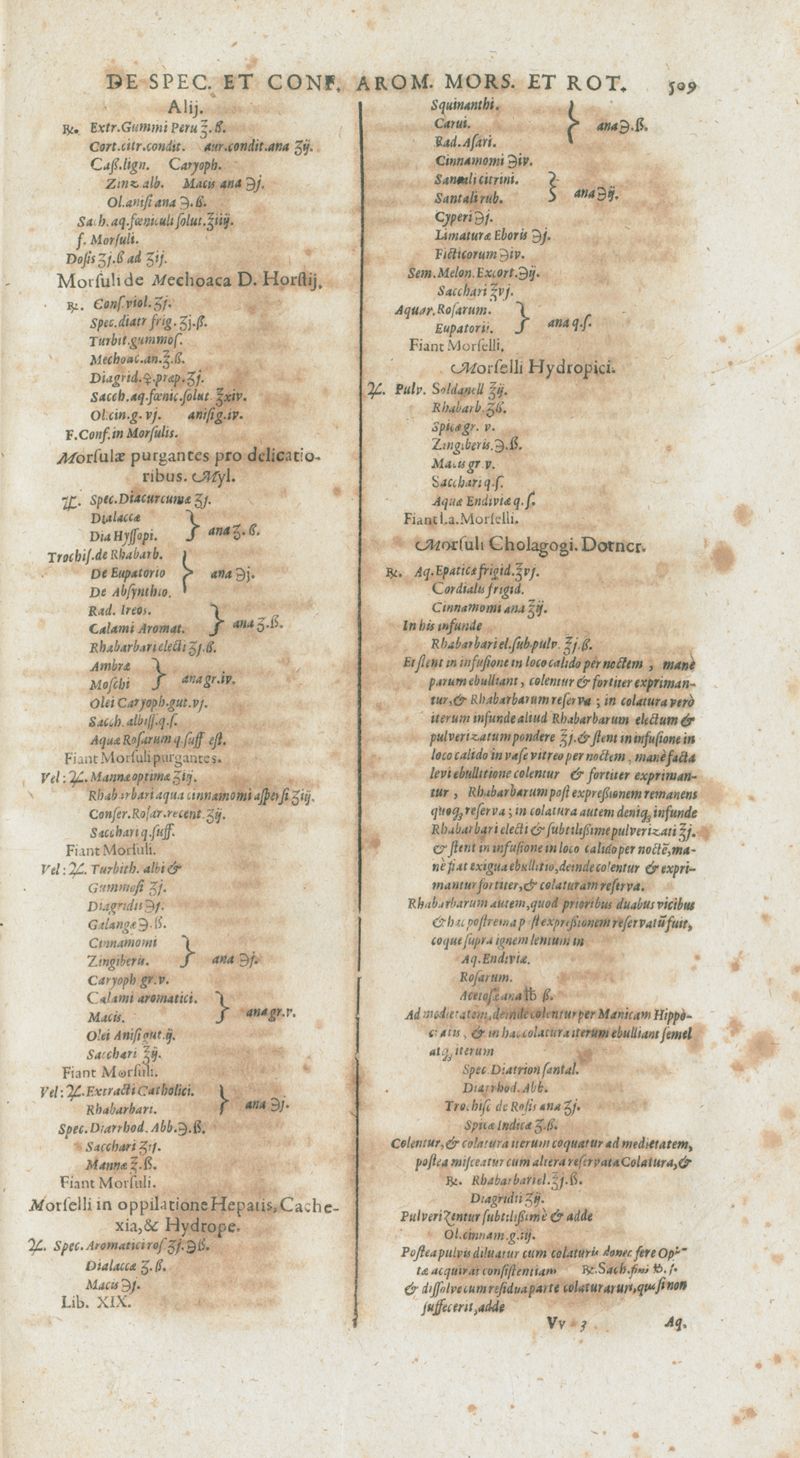 DE SPEC. ET CONF. AROM. MORS. ET ROT. 509
Alij.
℞. Extr.Gummi Peru ℥.ß.
Cort.citr.condit. aur.condit.ana ʒij.
Caß.lign. Caryoph.
Zinz alb. Macis ana ℈j.
Ol.anisi ana ℈.ß.
Sach.aq.fœniculi ſolut.℥iiij.
f. Morſuli.
Doſis ʒj.ß ad ʒij.
Morſuli de Mechoaca D. Horſtij.
℞. Conſ.viol.ʒj.
Spec.diatr frig.ʒj.ß.
Turbit.gummoſ.
Mechoac.an.℥.ß.
Diagrid.♀.præp.ʒj.
Sacch.aq.fœnic.ſolut ℥xiv.
Ol.cin.g.vj. aniſi g.iv.
F.Conf.in Morſulis.
Morſulæ purgantes pro delicatio-
ribus. Myl.
♃. Spec.Diacurcumæ ʒj.
Dialaccæ
Dia Hyſſopi. } ana ʒ.ß.
Trochiſ.de Rhabarb.
De Eupatorio } ana ℈j.
De Abſynthio.
Rad. Ireos.
Calami Aromat. } ana ʒ.ß.
Rhabarbari electi ʒj.ß.
Ambræ
Moſchi } ana gr.iv.
Olei Caryoph.gut.vj.
Sacch.albiſſ.q.ſ.
Aquæ Roſarum q.ſuff eſt.
Fiant Morſuli purgantes.
Vel: ♃. Mannæ optimæ ʒiij.
Rhabarbari aqua cinnamomi aſperſi ʒiij.
Conſer.Roſar.recent.℥ij.
Sacchari q.ſuff.
Fiant Morſuli.
Vel: ♃. Turbith. albi &
Gummoſi ʒj.
Diagridii ℈j.
Galangæ ℈.ß.
Cinnamomi
Zingiberis. } ana ℈j.
Caryoph gr.v.
Calami aromatici.
Macis. } ana gr.v.
Olei Aniſi gut.ij.
Sacchari ℥ij.
Fiant Morſuli.
Vel: ♃.Extracti Catholici.
Rhabarbari. } ana ℈j.
Spec.Diarrhod. Abb.℈.ß.
Sacchari ʒij.
Mannæ ℥.ß.
Fiant Morſuli.
Morſelli in oppilatione Hepatis, Cache-
xia,& Hydrope.
♃. Spec.Aromatici roſ ʒj.℈ß.
Dialaccæ ʒ.ß.
Macis ℈j.
Lib. XIX.
Squinanthi.
Carui. } ana ℈.ß.
Rad. Aſari.
Cinnamomi ℈iv.
Santali citrini.
Santali rub. } ana ℈ij.
Cyperi ℈j.
Limaturæ Eboris ℈j.
Ficticorum ℈iv.
Sem. Melon. Excort.℈ij.
Sacchari ℥vj.
Aquar.Roſarum.
Eupatorii. } ana q.ſ.
Fiant Morſelli.
Morſelli Hydropici.
♃. Pulv. Soldanell ℥ij.
Rhabarb.ʒß.
Spicæ gr. v.
Zingiberis.℈.ß.
Macis gr v.
Sacchari q.ſ.
Aquæ Endiviæ q.ſ.
Fiant l.a.Morſelli.
Morſuli Cholagogi. Dorncr.
℞. Aq.Epaticæ frigid.℥vj.
Cordialis frigid.
Cinnamomi ana ℥ij.
In his infunde
Rhabarbari el.ſub.pulv. ℥j.ß.
Et ſtent in infuſione in loco calido per noctem, manè
parum ebulliant, colentur & fortiter expriman-
tur,& Rhabarbarum reſerva; in colatura verò
iterum infunde aliud Rhabarbarum electum &
pulverizatum pondere ℥j.& ſtent in infuſione in
loco calido in vaſe vitreo per noctem, manè facta
levi ebullitione colentur & fortiter expriman-
tur, Rhabarbarum poſt expreßionem remanens
quoq; reſerva; in colatura autem deniq; infunde
Rhabarbari electi & ſubtilißime pulverizati ℥j.
& ſtent in infuſione in loco calido per noctẽ,ma-
nè fiat exigua ebullitio,deinde colentur & expri-
mantur fortiter,& colaturam reſerva.
Rhabarbarum autem,quod prioribus duabus vicibus
& hac poſtrema poſt expreßionem reſervatũ fuit,
coque ſupra ignem lentum in
Aq.Endiviæ.
Roſarum.
Acetoſæ ana ℔ ß.
Ad medietatem,deinde colentur per Manicam Hippo-
cratis, & in hac colatura iterum ebulliant ſemel
atq; iterum
Spec Diatrion ſantal.
Diarrhod. Abb.
Trochiſc de Roſis ana ʒj.
Spicæ Indicæ ʒ.ß.
Colentur,& colatura iterum coquatur ad medietatem,
poſtea miſceatur cum altera reſervata Colatura,&
℞. Rhabarbari el.ʒj.ß.
Diagridii ʒij.
Pulverizentur ſubtilißimè & adde
Ol.cinnam.g.iij.
Poſtea pulvis diluatur cum colaturis donec fere Opi-
tæ acquirat conſiſtentiam ℞.Sach.fini ℔.j.
& diſſolve cum reſidua parte colaturarum,quæ ſi non
ſuffecerit,adde
Vv 3 Aq.